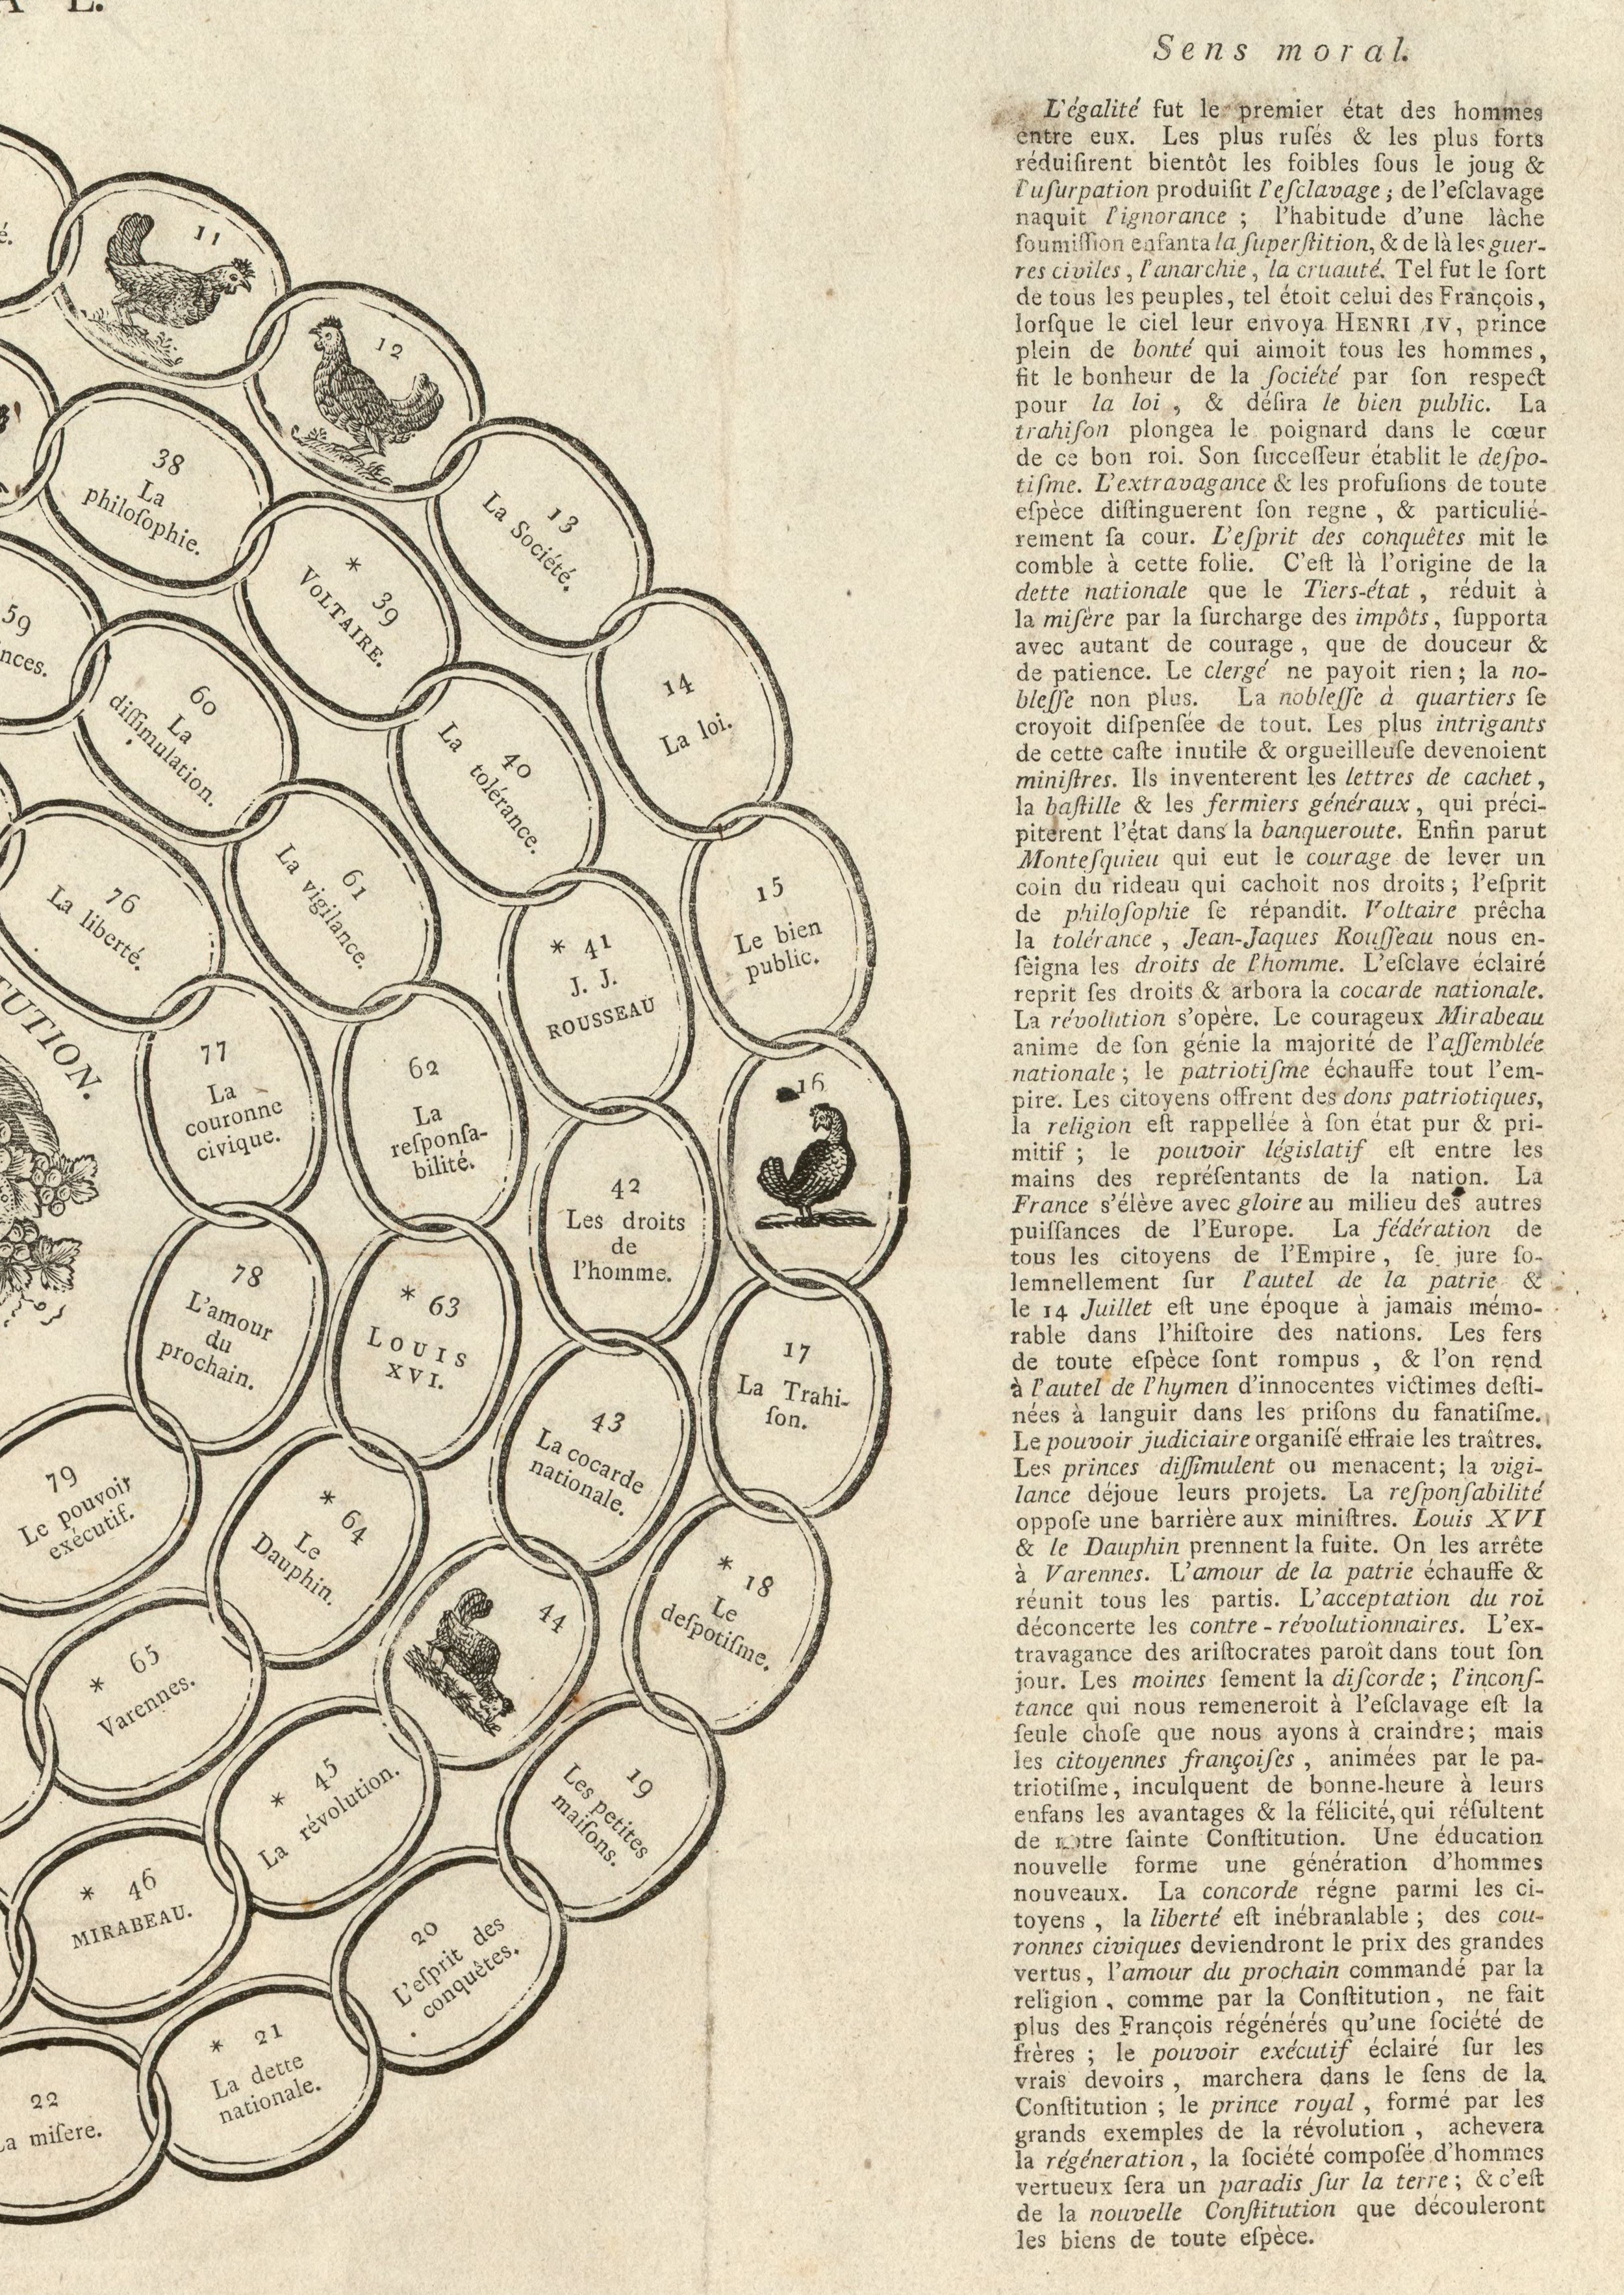 A L.
é.
11
12
13
La Société.
14
La loi.
15
Le bien
public.
16
17
La Trahi-
ſon.
* 18
Le
deſpotiſme.
19
Les petites
maiſons.
20
L'eſprit des
conquêtes.
* 21
La dette
nationale.
22
La miſere.
38
La
philoſophie.
* 39
VOLTAIRE.
40
La
tolérance.
* 41
J. J.
ROUSSEAU
42
Les droits
de
l'homme.
43
La cocarde
nationale.
44
* 45
La révolution.
* 46
MIRABEAU.
59
nces.
60
La
diſſimulation.
61
La vigilance.
62
La
reſponſa-
bilité.
* 63
LOUIS
XVI.
* 64
Le
Dauphin.
* 65
Varennes.
76
La liberté.
77
La
couronne
civique.
78
L'amour
du
prochain.
79
Le pouvoir
exécutif.
TUTION.
Sens moral.
L'égalité fut le premier état des hommes
entre eux. Les plus ruſés & les plus forts
réduiſirent bientôt les foibles ſous le joug &
l'uſurpation produiſit l'eſclavage ; de l'eſclavage
naquit l'ignorance ; l'habitude d'une lâche
ſoumiſſion enfanta la ſuperſtition, & de là les guer-
res civiles, l'anarchie, la cruauté. Tel fut le ſort
de tous les peuples, tel étoit celui des François,
lorſque le ciel leur envoya HENRI IV, prince
plein de bonté qui aimoit tous les hommes,
fit le bonheur de la ſociété par ſon reſpect
pour la loi , & déſira le bien public. La
trahiſon plongea le poignard dans le cœur
de ce bon roi. Son ſucceſſeur établit le deſpo-
tiſme. L'extravagance & les profuſions de toute
eſpèce diſtinguerent ſon regne , & particulié-
rement ſa cour. L'eſprit des conquêtes mit le
comble à cette folie. C'eſt là l'origine de la
dette nationale que le Tiers-état , réduit à
la miſère par la ſurcharge des impôts, ſupporta
avec autant de courage , que de douceur &
de patience. Le clergé ne payoit rien ; la no-
bleſſe non plus. La nobleſſe à quartiers ſe
croyoit diſpenſée de tout. Les plus intrigants
de cette caſte inutile & orgueilleuſe devenoient
miniſtres. Ils inventerent les lettres de cachet,
la baſtille & les fermiers généraux, qui préci-
piterent l'état dans la banqueroute. Enfin parut
Monteſquieu qui eut le courage de lever un
coin du rideau qui cachoit nos droits ; l'eſprit
de philoſophie ſe répandit. Voltaire prêcha
la tolérance , Jean-Jaques Rouſſeau nous en-
ſeigna les droits de l'homme. L'eſclave éclairé
reprit ſes droits & arbora la cocarde nationale.
La révolution s'opère. Le courageux Mirabeau
anime de ſon génie la majorité de l'aſſemblée
nationale ; le patriotiſme échauffe tout l'em-
pire. Les citoyens offrent des dons patriotiques,
la religion eſt rappellée à ſon état pur & pri-
mitif ; le pouvoir législatif eſt entre les
mains des repréſentants de la nation. La
France s'élève avec gloire au milieu des autres
puiſſances de l'Europe. La fédération de
tous les citoyens de l'Empire, ſe jure ſo-
lemnellement ſur l'autel de la patrie &
le 14 Juillet eſt une époque à jamais mémo-
rable dans l'hiſtoire des nations. Les fers
de toute eſpèce ſont rompus , & l'on rend
à l'autel de l'hymen d'innocentes victimes deſti-
nées à languir dans les priſons du fanatiſme.
Le pouvoir judiciaire organiſé effraie les traîtres.
Les princes diſſimulent ou menacent ; la vigi-
lance déjoue leurs projets. La reſponſabilité
oppoſe une barrière aux miniſtres. Louis XVI
& le Dauphin prennent la fuite. On les arrête
à Varennes. L'amour de la patrie échauffe &
réunit tous les partis. L'acceptation du roi
déconcerte les contre-révolutionnaires. L'ex-
travagance des ariſtocrates paroît dans tout ſon
jour. Les moines ſement la diſcorde ; l'inconſ-
tance qui nous remeneroit à l'eſclavage eſt la
ſeule choſe que nous ayons à craindre ; mais
les citoyennes françoiſes , animées par le pa-
triotiſme, inculquent de bonne-heure à leurs
enfans les avantages & la félicité, qui réſultent
de notre ſainte Conſtitution. Une éducation
nouvelle forme une génération d'hommes
nouveaux. La concorde régne parmi les ci-
toyens , la liberté eſt inébranlable ; des cou-
ronnes civiques deviendront le prix des grandes
vertus, l'amour du prochain commandé par la
religion , comme par la Conſtitution, ne fait
plus des François régénérés qu'une ſociété de
frères ; le pouvoir exécutif éclairé ſur les
vrais devoirs , marchera dans le ſens de la
Conſtitution ; le prince royal , formé par les
grands exemples de la révolution , achevera
la régéneration , la ſociété compoſée d'hommes
vertueux ſera un paradis ſur la terre ; & c'eſt
de la nouvelle Conſtitution que découleront
les biens de toute eſpèce.